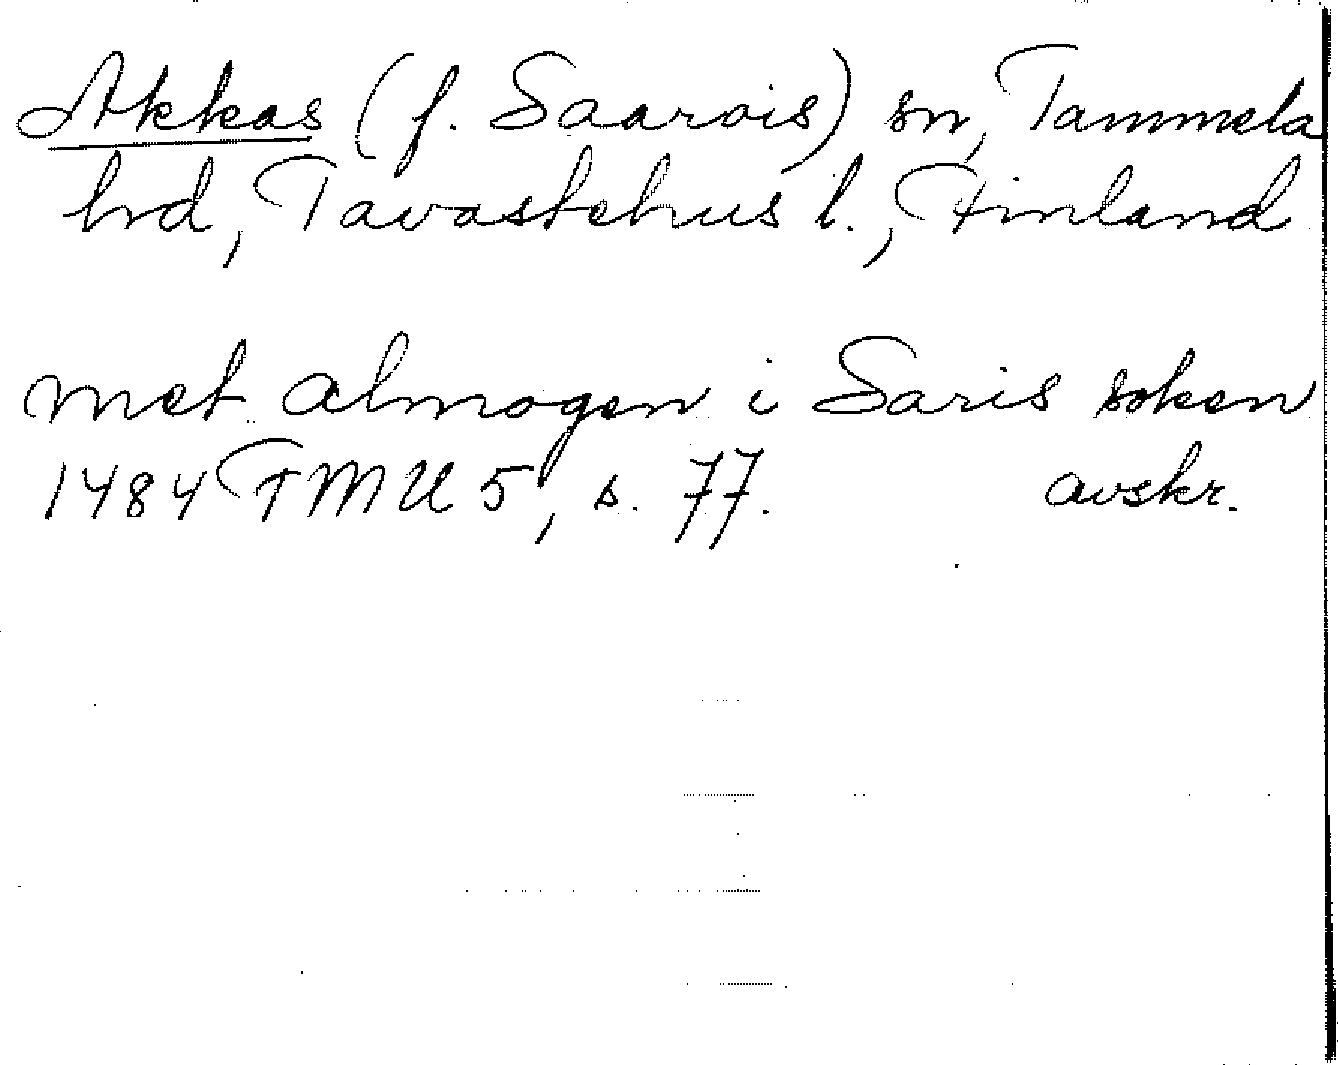 Akkas (f. Saarois) sn, Tammela
hrd, Tavastehus l., Finland
met almogen i Saris soken
1484 FMU 5, s. 77. avskr.